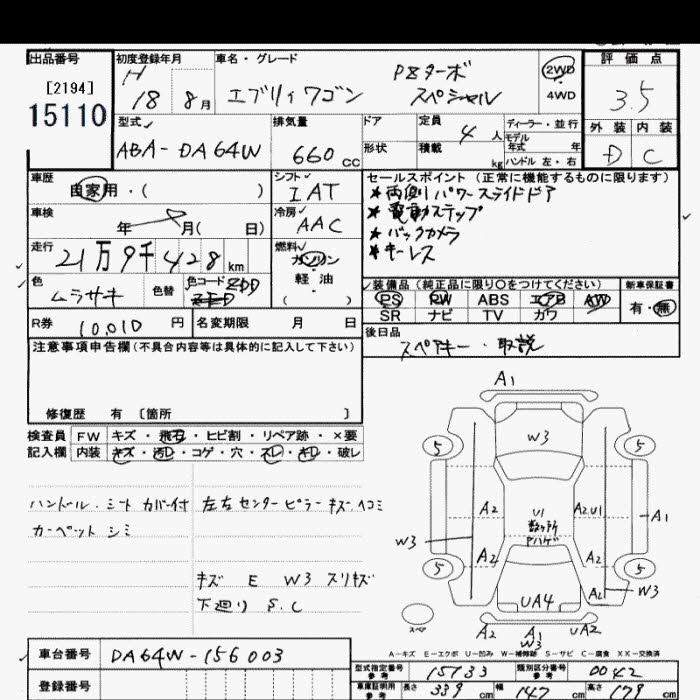 出品番号
[2194]
15110
初度登録年月
H 18 8月
車名・グレード
エブリィワゴン
PZターボ
スペシャル
2WD
4WD
評価点
3.5
外装 内装
D C
型式
ABA-DA64W
排気量
660cc
ドア
形状
定員 4人
積載 kg
ディーラー・並行
モデル
年式 年
ハンドル 左・右
車歴
自家用・( )
シフト
IAT
車検
年 月( 日)
冷房
AAC
走行
21万9千428km
燃料
ガソリン
軽・油
( )
色
ムラサキ
色替
色コード ZDD
R券
10,010円
名変期限 月 日
セールスポイント(正常に機能するものに限ります)
★両側パワースライドドア
★電動ステップ
★バックカメラ
★キーレス
装備品(純正品に限り○をつけてください)
PS PW ABS エアB AW
SR ナビ TV カワ
新車保証書
有・無
後日品
スペアキー・取説
注意事項申告欄(不具合内容等は具体的に記入して下さい)
修復歴 有 〔箇所 〕
検査員
記入欄
FW キズ・飛石・ヒビ割・リペア跡・×要
内装 キズ・汚レ・コゲ・穴・スレ・キレ・破レ
ハンドル.シートカバー付 左右センターピラーキズ.ヘコミ
カーペットシミ
キズ E W3 スリキズ
下廻り S.C
A1
5
W3
5
A2
U1
数ヶ所
Pハゲ
A2.U1
A1
W3
A2
A2
5
5
UA4
A2
W3
スペア
A2
A1
W3
UA2
A-キズ E-エクボ U-凹み W-補修跡 S-サビ C-腐食 XX-交換済
車台番号
DA64W-156003
登録番号
型式指定番号
参考
15133
類別区分番号
参考
0042
車庫証明用
参考
長さ 339cm
幅 147cm
高さ 179cm